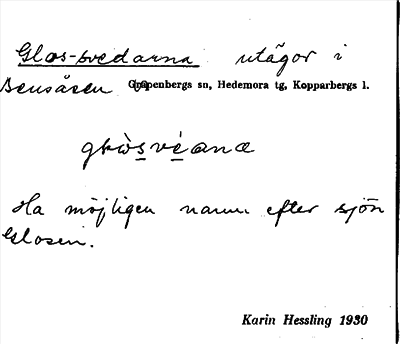 Glos-svedarna utägor i
Bensåsen Garpenbergs sn, Hedemora tg, Kopparbergs l.
Ha möjligen namn efter sjön
Glosen.
Karin Hessling 1930